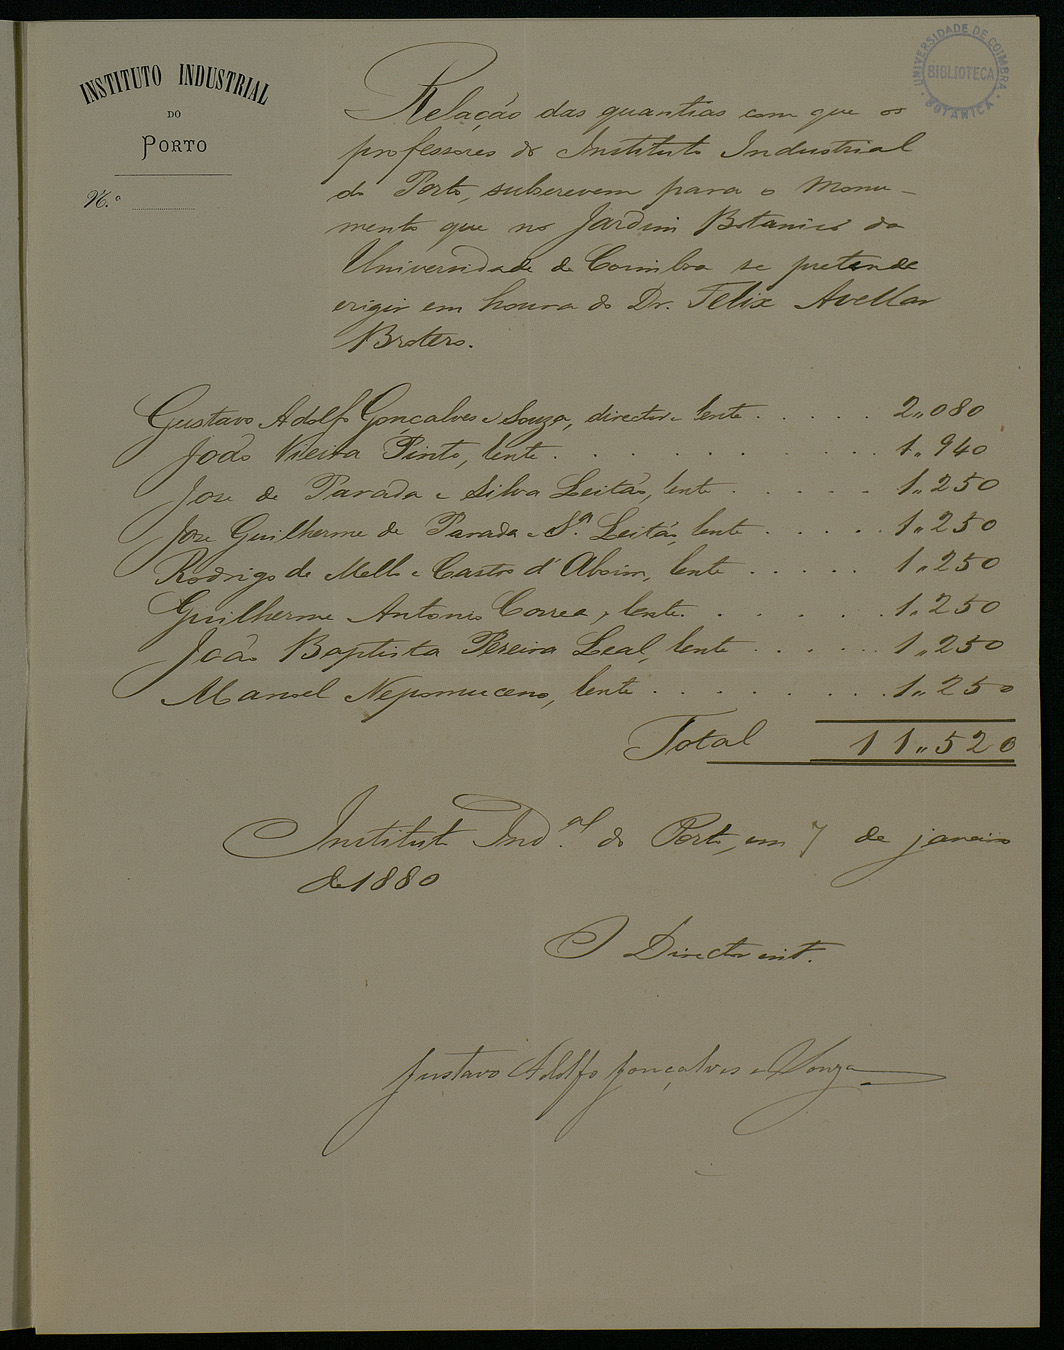 INSTITUTO INDUSTRIAL
DO
PORTO
N.º
UNIVERSIDADE DE COIMBRA
BIBLIOTECA
BOTANICA
Relação das quantias com que os
professores do Instituto Industrial
do Porto, subscrevem para o Monu-
mento que no Jardim Botanico da
Universidade de Coimbra se pretende
erigir em honra do Dr. Felix Avellar
Brotero.
Gustavo Adolfo Gonçalves e Souza, director e lente . . . . . 2,,080
João Vieira Pinto, lente . . . . . . . . . . 1,,940
Jose de Parada e Silva Leitão, lente . . . . . 1,,250
Jose Guilherme de Parada e S.ª Leitão, lente . . . . . 1,,250
Rodrigo de Mello e Castro d'Aboim, lente . . . . . 1,,250
Guilherme Antonio Correa, lente . . . . . . 1,,250
João Baptista Pereira Leal, lente . . . . . . 1,,250
Manoel Nepomuceno, lente . . . . . . . . . 1,,250
Total 11,,520
Instituto Ind.al do Porto, em 7 de janeiro
de 1880
O Director int.
Gustavo Adolfo Gonçalves e Souza